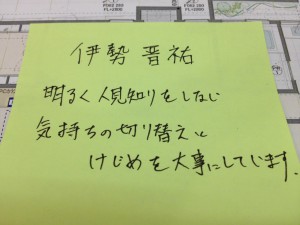 伊勢 晋祐
明るく人見知りをしない
気持ちの切り替えと
けじめを大事にしています.